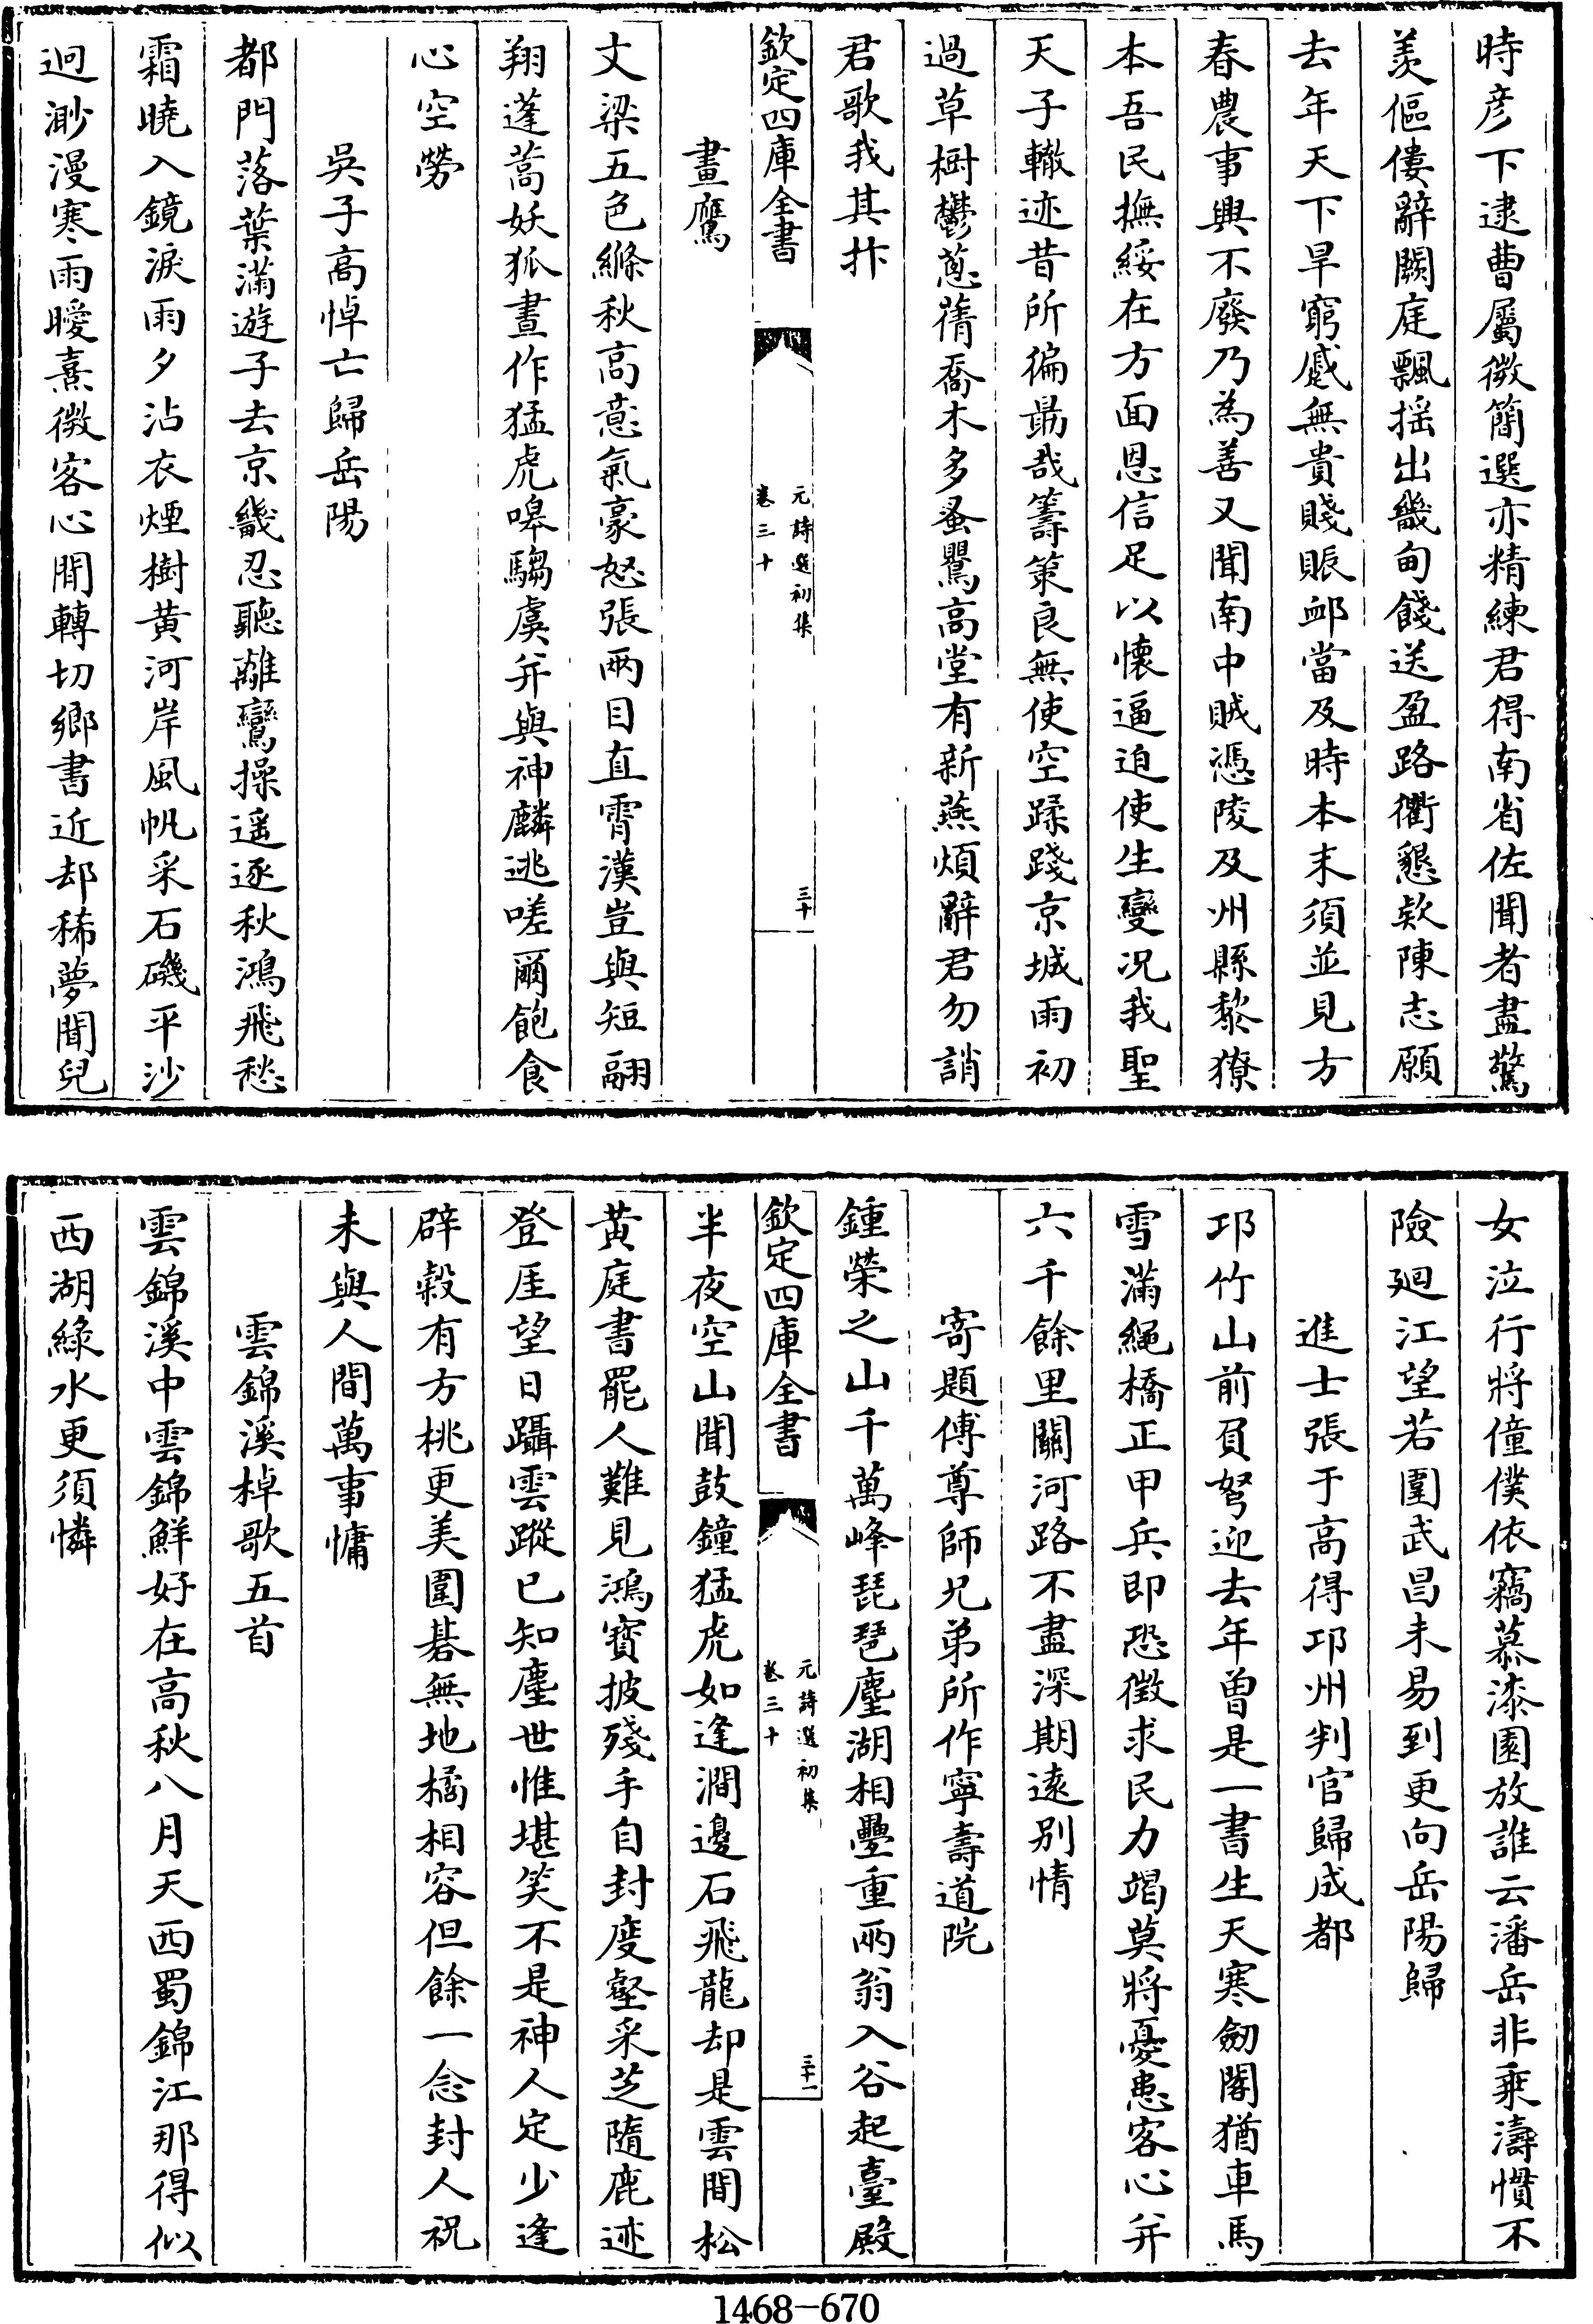 時彦下逮曹屬微簡選亦精練君得南省佐聞者盡驚
羨傴僂辭闕庭飄揺出畿甸餞送盈路衢懇欵陳志願
去年天下旱窮慼無貴賤賑䘏當及時本末須並見方
春農事興不廢乃為善又聞南中賊憑陵及州縣黎獠
本吾民撫綏在方面恩信足以懷逼迫使生變况我聖
天子轍迹昔所徧勗哉籌策良無使空蹂踐京城雨初
過草樹鬱蔥蒨喬木多蚤鸎高堂有新燕煩辭君勿誚
君歌我其抃
欽定四庫全書
元詩選初集
卷三十
三十
畫鷹
丈梁五色絛秋高意氣豪怒張兩目直霄漢豈與短翮
翔蓬蒿妖狐晝作猛虎嘷騶虞并與神麟逃嗟爾飽食
心空勞
吳子高悼亡歸岳陽
都門落葉滿遊子去京畿忍聽離鸞操遥逐秋鴻飛愁
霜曉入鏡淚雨夕沾衣煙樹黄河岸風帆采石磯平沙
迥渺漫寒雨曖熹微客心閒轉切鄉書近却稀夢聞兒
女泣行將僮僕依竊慕漆園放誰云潘岳非乘濤慣不
險廻江望若圍武昌未易到更向岳陽歸
進士張于高得邛州判官歸成都
邛竹山前負弩迎去年曽是一書生天寒劒閣猶車馬
雪滿繩橋正甲兵即恐徴求民力竭莫將憂患客心并
六千餘里關河路不盡深期逺别情
寄題傅尊師兄弟所作寧壽道院
鍾榮之山千萬峰琵琶塵湖相疊重兩翁入谷起臺殿
欽定四庫全書
元詩選初集
卷三十
三十一
半夜空山聞鼓鐘猛虎如逢澗邊石飛龍却是雲間松
黄庭書罷人難見鴻寶披殘手自封度壑采芝隨鹿迹
登厓望日躡雲蹤已知塵世惟堪笑不是神人定少逢
辟榖有方桃更美圍碁無地橘相容但餘一念封人祝
未與人間萬事慵
雲錦溪棹歌五首
雲錦溪中雲錦鮮好在高秋八月天西蜀錦江那得似
西湖緑水更須憐
1468-670